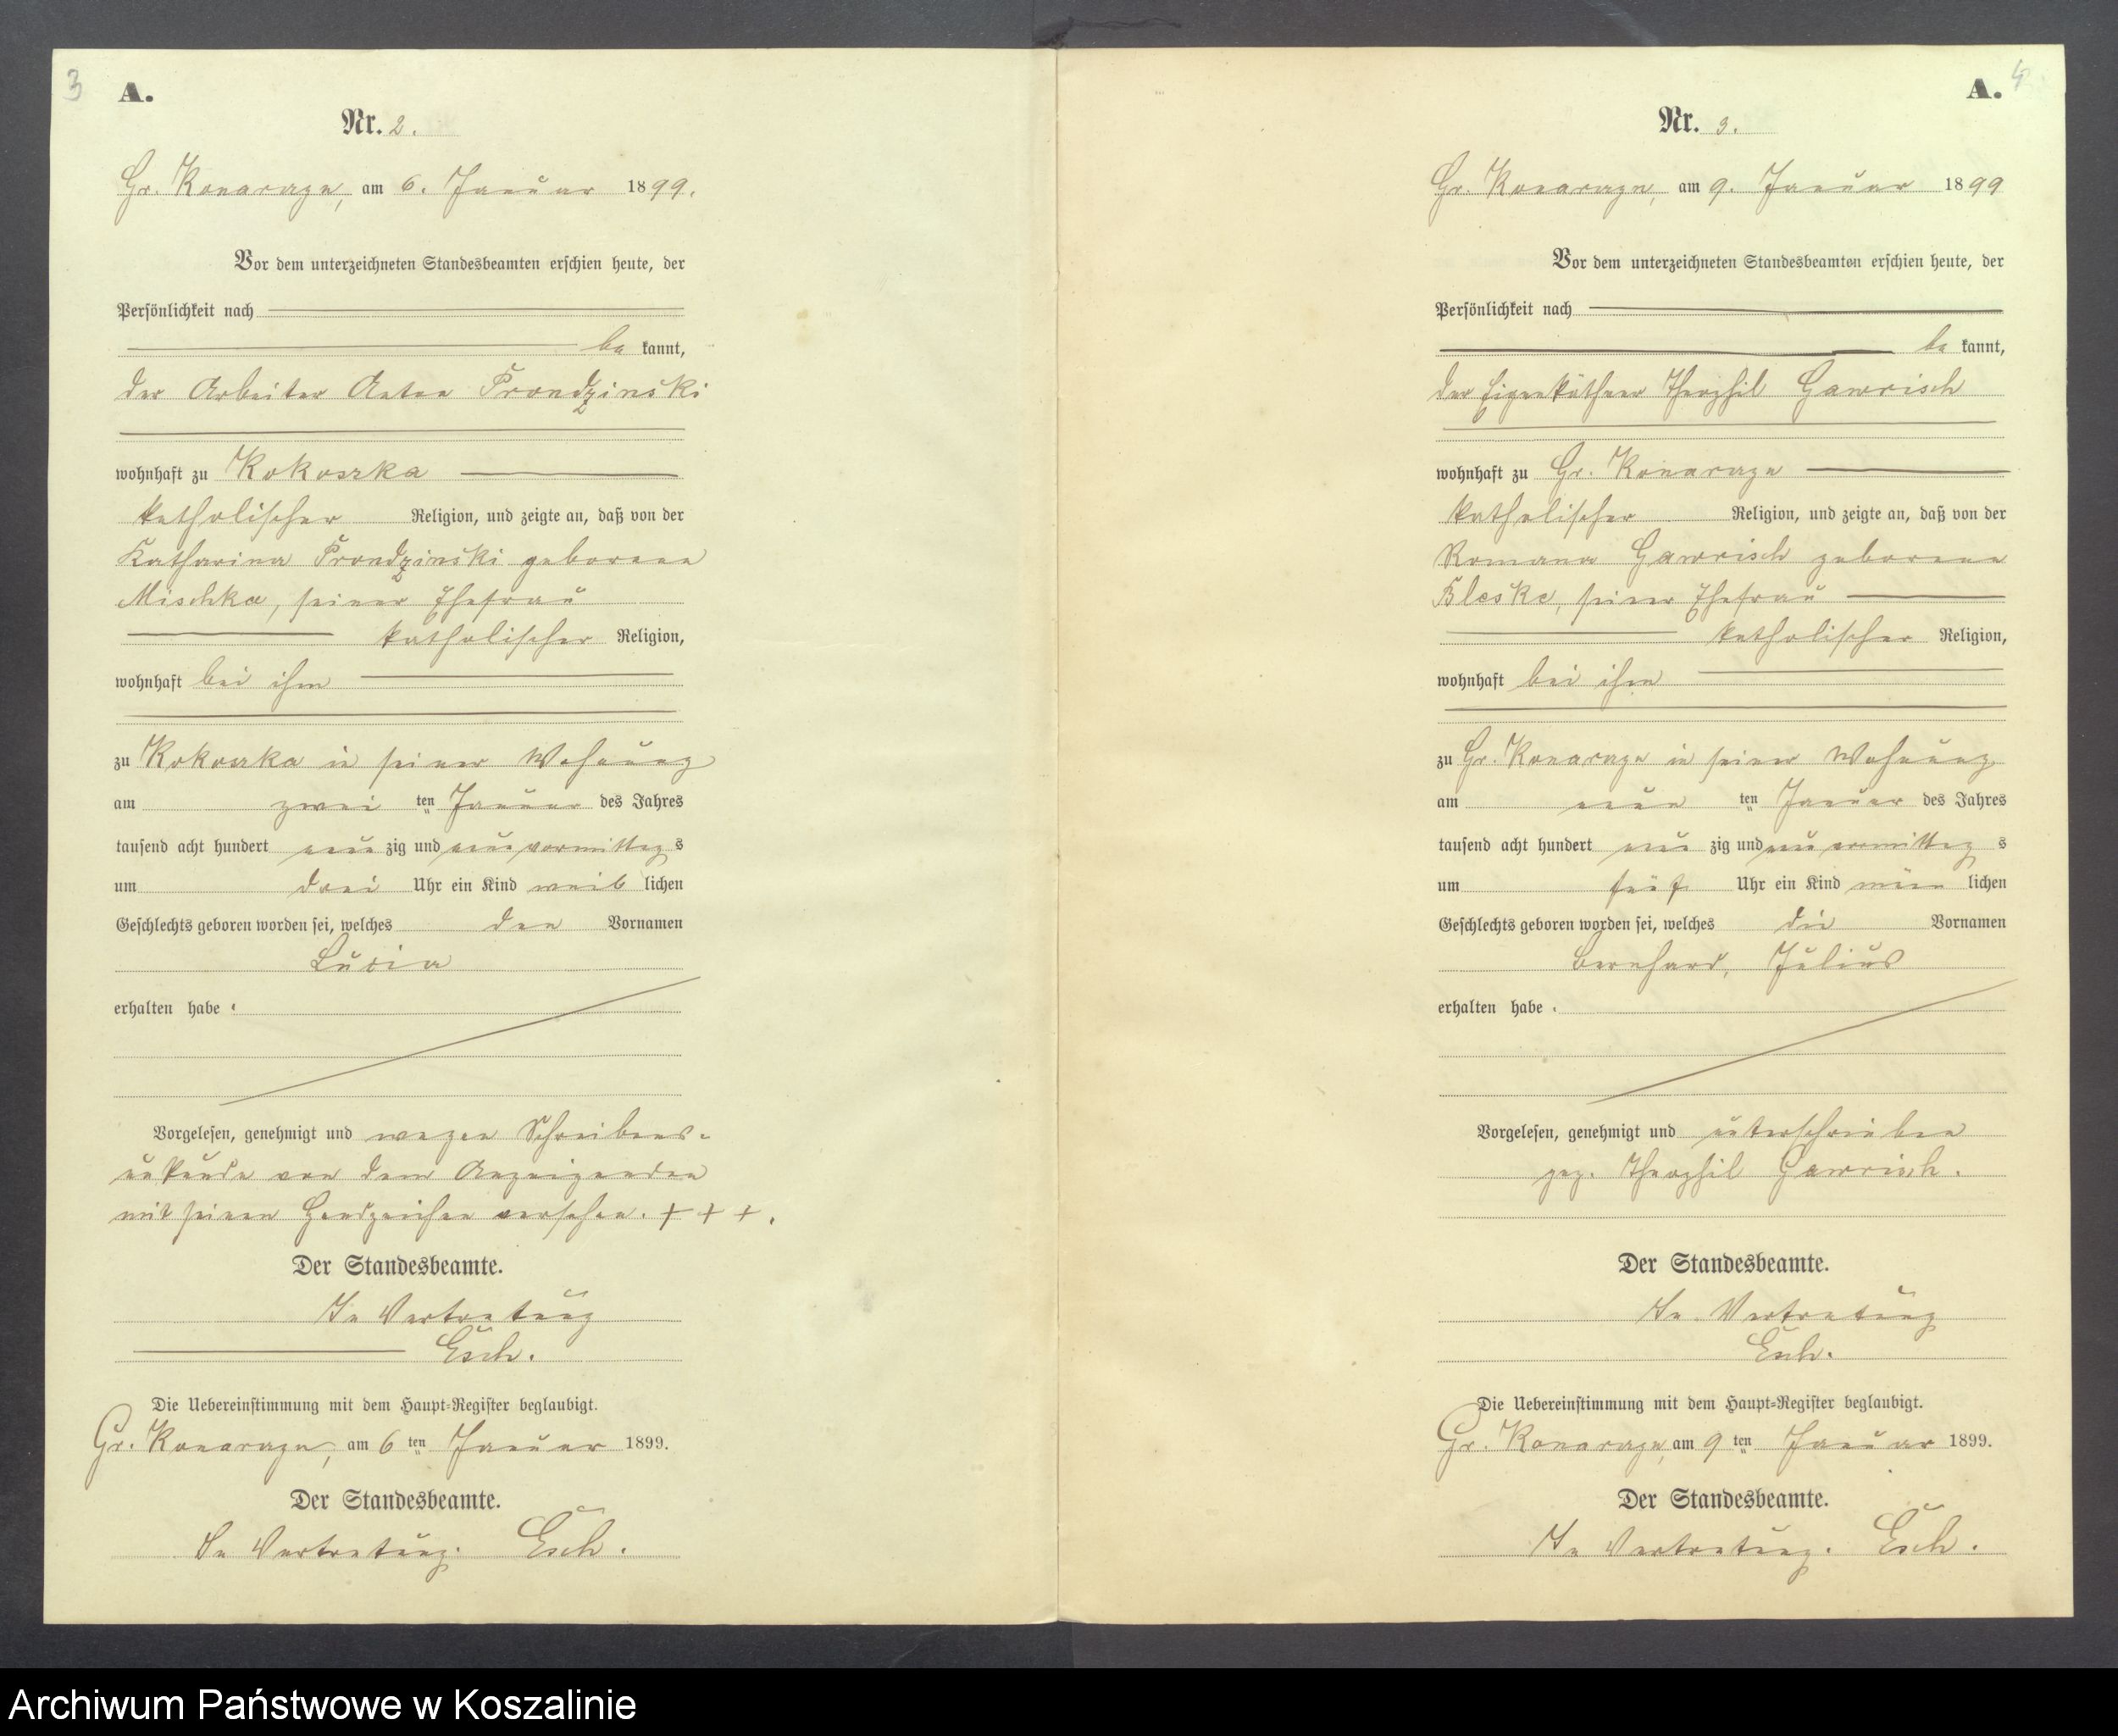 3 A.
Nr. 2.
Gr. Konarzyn, am 6. Januar 1899.
Vor dem unterzeichneten Standesbeamten erschien heute, der
Persönlichkeit nach
be kannt,
der Arbeiter Anton Prondzinski
wohnhaft zu Kokoszka
katholischer Religion, und zeigte an, daß von der
Katharina Prondzinski geborene
Mischka, seiner Ehefrau
katholischer Religion,
wohnhaft bei ihm
zu Kokoszka in seiner Wohnung
am zwei ten Januar des Jahres
tausend acht hundert neun zig und neun vormittag s
um drei Uhr ein Kind weib lichen
Geschlechts geboren worden sei, welches den Vornamen
Lucia
erhalten habe.
Vorgelesen, genehmigt und wegen Schreibens-
unkunde von dem Anzeigenden
mit seinen Handzeichen versehen. + + +.
Der Standesbeamte.
In Vertretung
Esch.
Die Uebereinstimmung mit dem Haupt-Register beglaubigt.
Gr. Konarzyn, am 6 ten Januar 1899.
Der Standesbeamte.
In Vertretung. Esch.
A. 4
Nr. 3.
Gr. Konarzyn, am 9. Januar 1899
Vor dem unterzeichneten Standesbeamten erschien heute, der
Persönlichkeit nach
be kannt,
der Eigenkäthner Theophil Gawrisch
wohnhaft zu Gr. Konarzyn
katholischer Religion, und zeigte an, daß von der
Romana Gawrisch geborene
Bleske, seiner Ehefrau
katholischer Religion,
wohnhaft bei ihm
zu Gr. Konarzyn in seiner Wohnung
am neun ten Januar des Jahres
tausend acht hundert neun zig und neun vormittag s
um fünf Uhr ein Kind männ lichen
Geschlechts geboren worden sei, welches die Vornamen
Bernhard, Julius
erhalten habe.
Vorgelesen, genehmigt und unterschrieben
gez. Theophil Gawrisch.
Der Standesbeamte.
In Vertretung
Esch.
Die Uebereinstimmung mit dem Haupt-Register beglaubigt.
Gr. Konarzyn, am 9 ten Januar 1899.
Der Standesbeamte.
In Vertretung. Esch.
Archiwum Państwowe w Koszalinie